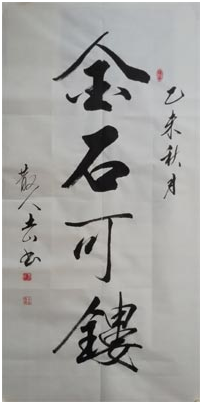 乙未秋月
金石可鏤
散人